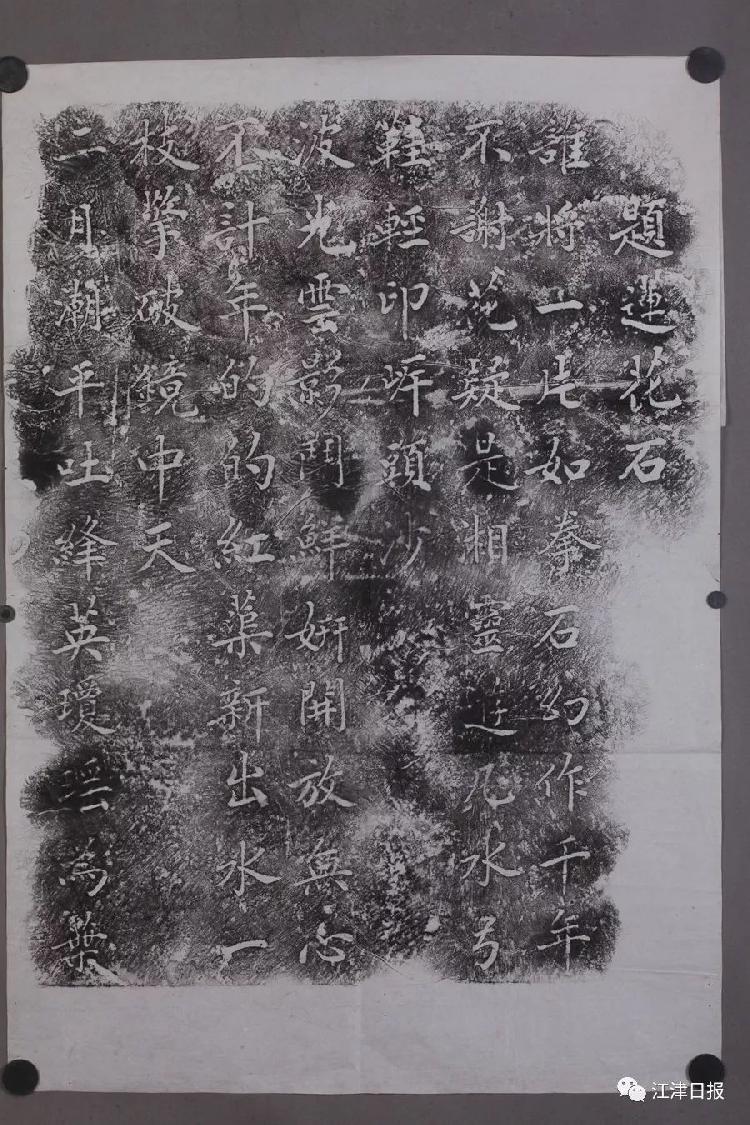 題蓮花石
誰將一片如拳石幻作千年
不謝花疑是湘靈遊凡水弓
鞋輕印岸頭沙
波光雲影鬪鮮妍開放無心
不計年的的紅蕖新出水一
枝擎破鏡中天
二月潮平吐絳英瓊瑶為葉
江津日报